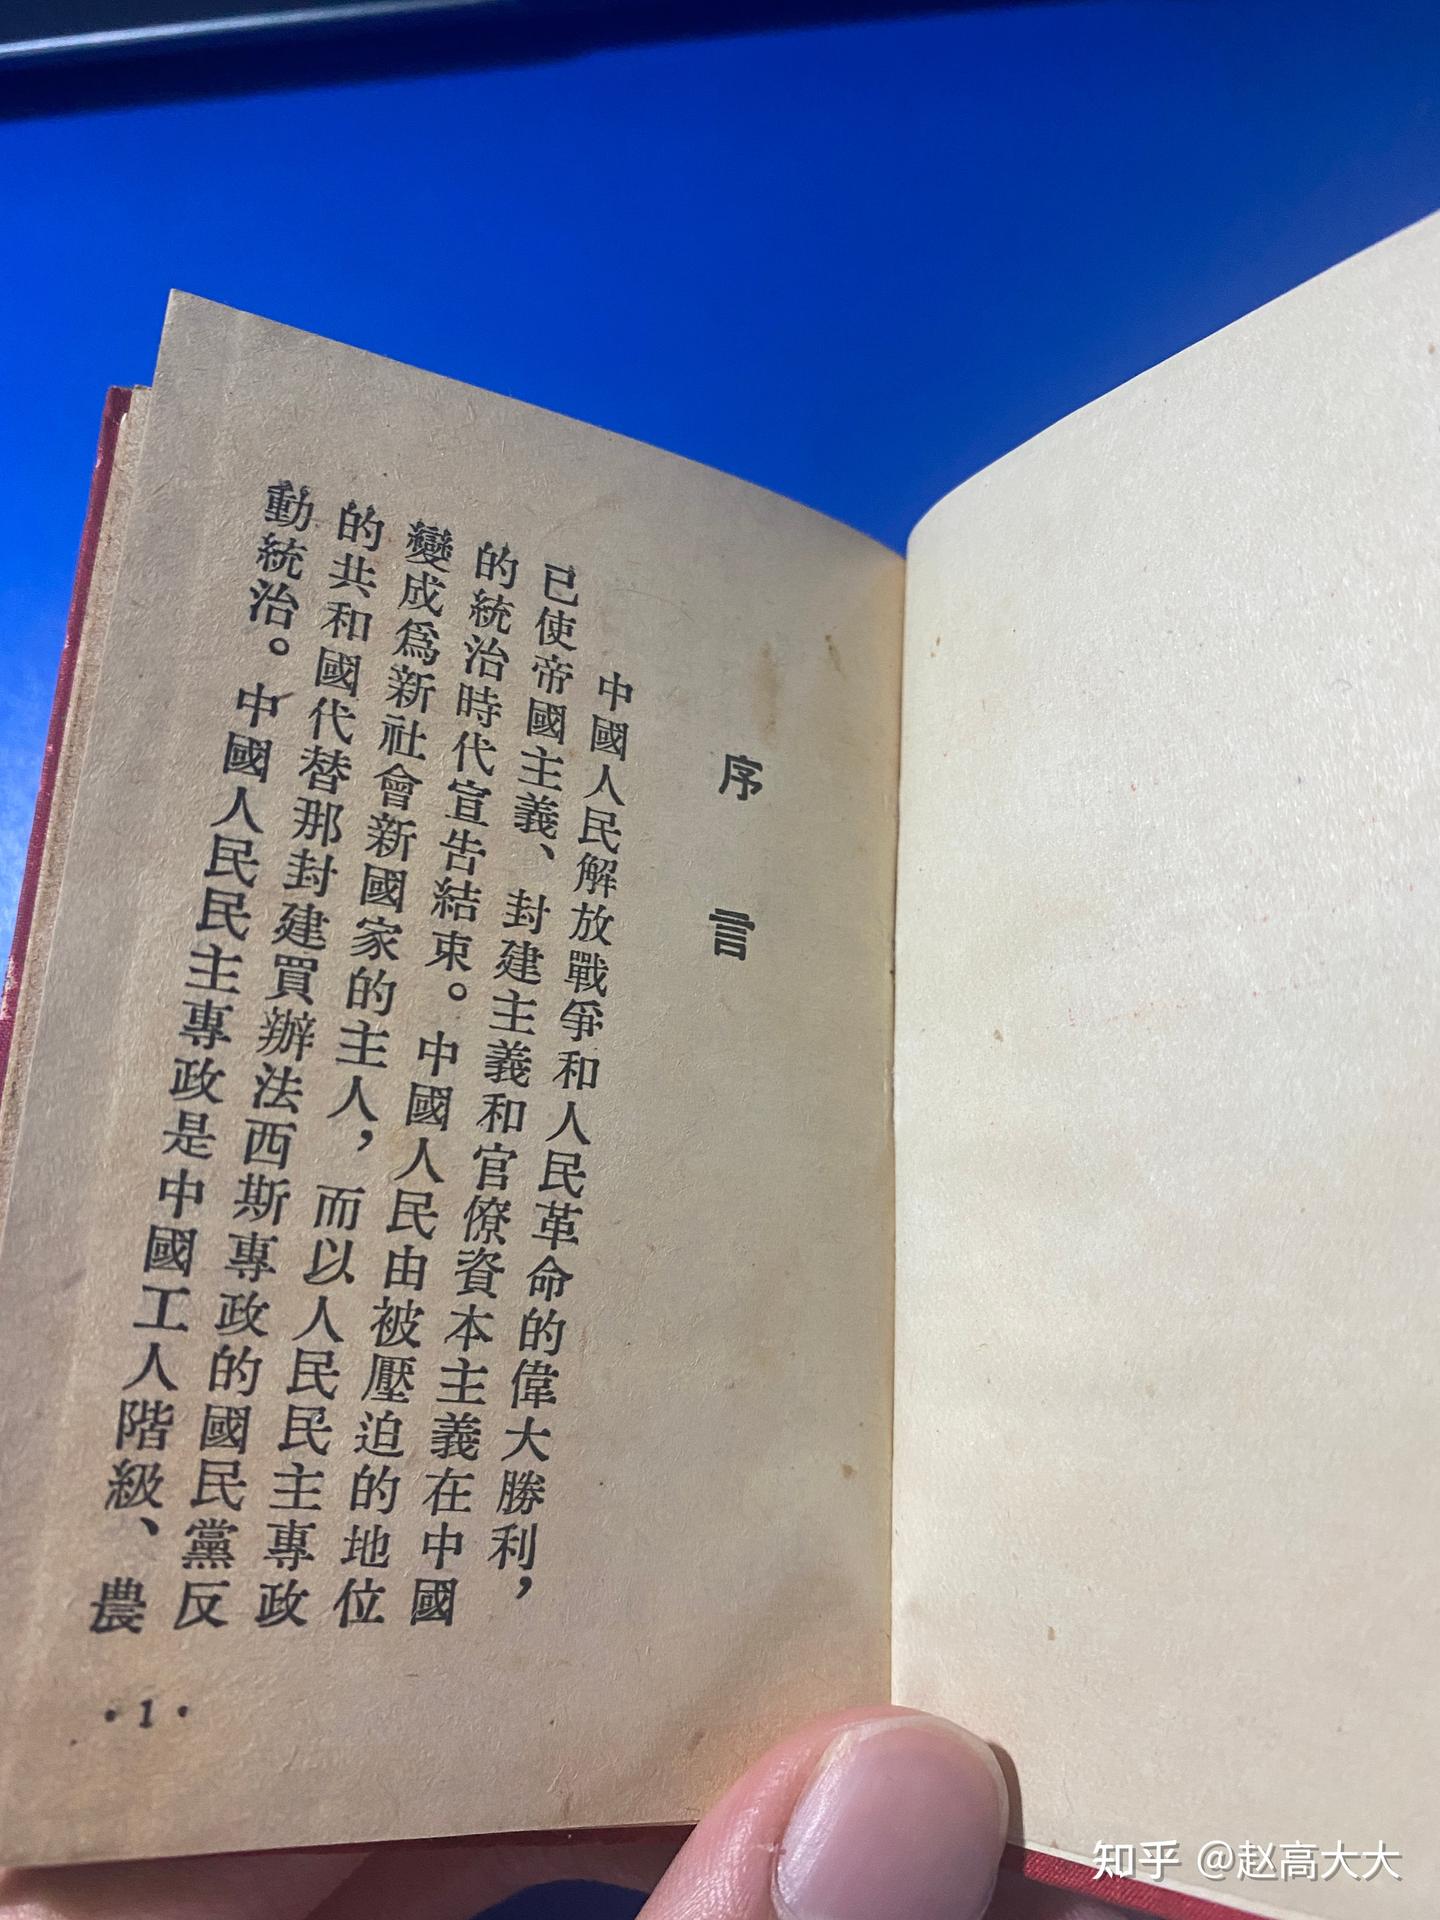 序言
中國人民解放戰爭和人民革命的偉大勝利，
已使帝國主義、封建主義和官僚資本主義在中國
的統治時代宣告結束。中國人民由被壓迫的地位
變成爲新社會新國家的主人，而以人民民主專政
的共和國代替那封建買辦法西斯專政的國民黨反
動統治。中國人民民主專政是中國工人階級、農
·1·
知乎 @赵高大大